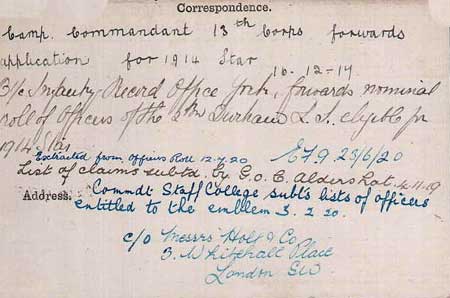 Correspondence.
Camp. Commandant 13th Corps forwards
application for 1914 Star
16-12-17
O/c Infantry Record Office York, forwards nominal
roll of Officers of the 2nd Durham L.I. eligible for
1914 Star
Extracted from Officers Roll 12.7.20 E.F.9. 23/6/20
List of claims subtd. by G.O.C. Aldershot. 4.11.19
Address: Commdt Staff College subt's lists of officers
entitled to the emblem 3. 2 20.
c/o Messrs Holt & Co
3. Whitehall Place
London SW